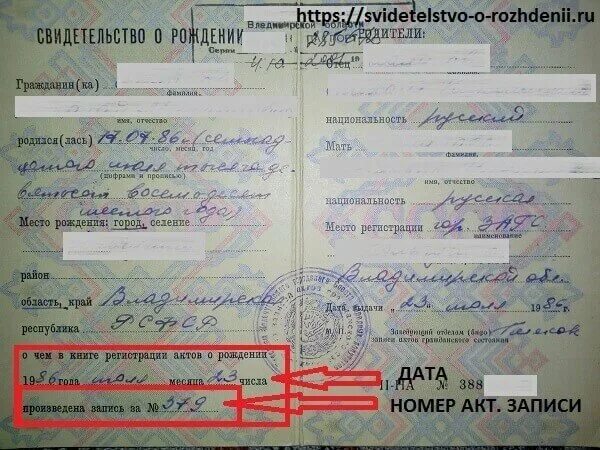 https://svidetelstvo-o-rozhdenii.ru
Владимирской области
СВИДЕТЕЛЬСТВО О РОЖДЕНИИ
Серия
РОДИТЕЛИ:
Отец
Гражданин(ка)
фамилия,
имя, отчество
родился(лась) 17.07.86г (семнад
число, месяц, год
цатого июля тысяча де
(цифрами и прописью)
вятьсот восемьдесят
шестого года)
Место рождения: город, селение
район
область, край Владимирская
республика РСФСР
о чем в книге регистрации актов о рождении
1986 года июля месяца 23 числа
произведена запись за № 379
национальность русский
Мать
фамилия,
имя, отчество
национальность русская
Место регистрации гор. ЗАГС
наименование
Владимирской обл.
Дата выдачи «23» июля 1986 г.
М. П. Заведующий отделом (бюро)
записи актов гражданского состояния
II-НА № 388
ДАТА
НОМЕР АКТ. ЗАПИСИ